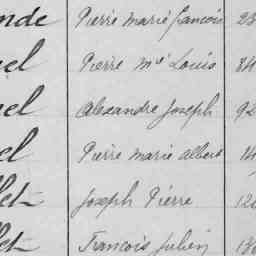 nde Pierre marie francois 23
el Pierre Mie Louis 84
el Alexandre Joseph 92
el Pierre marie albert 14
let Joseph Pierre 12
let Francois Julien